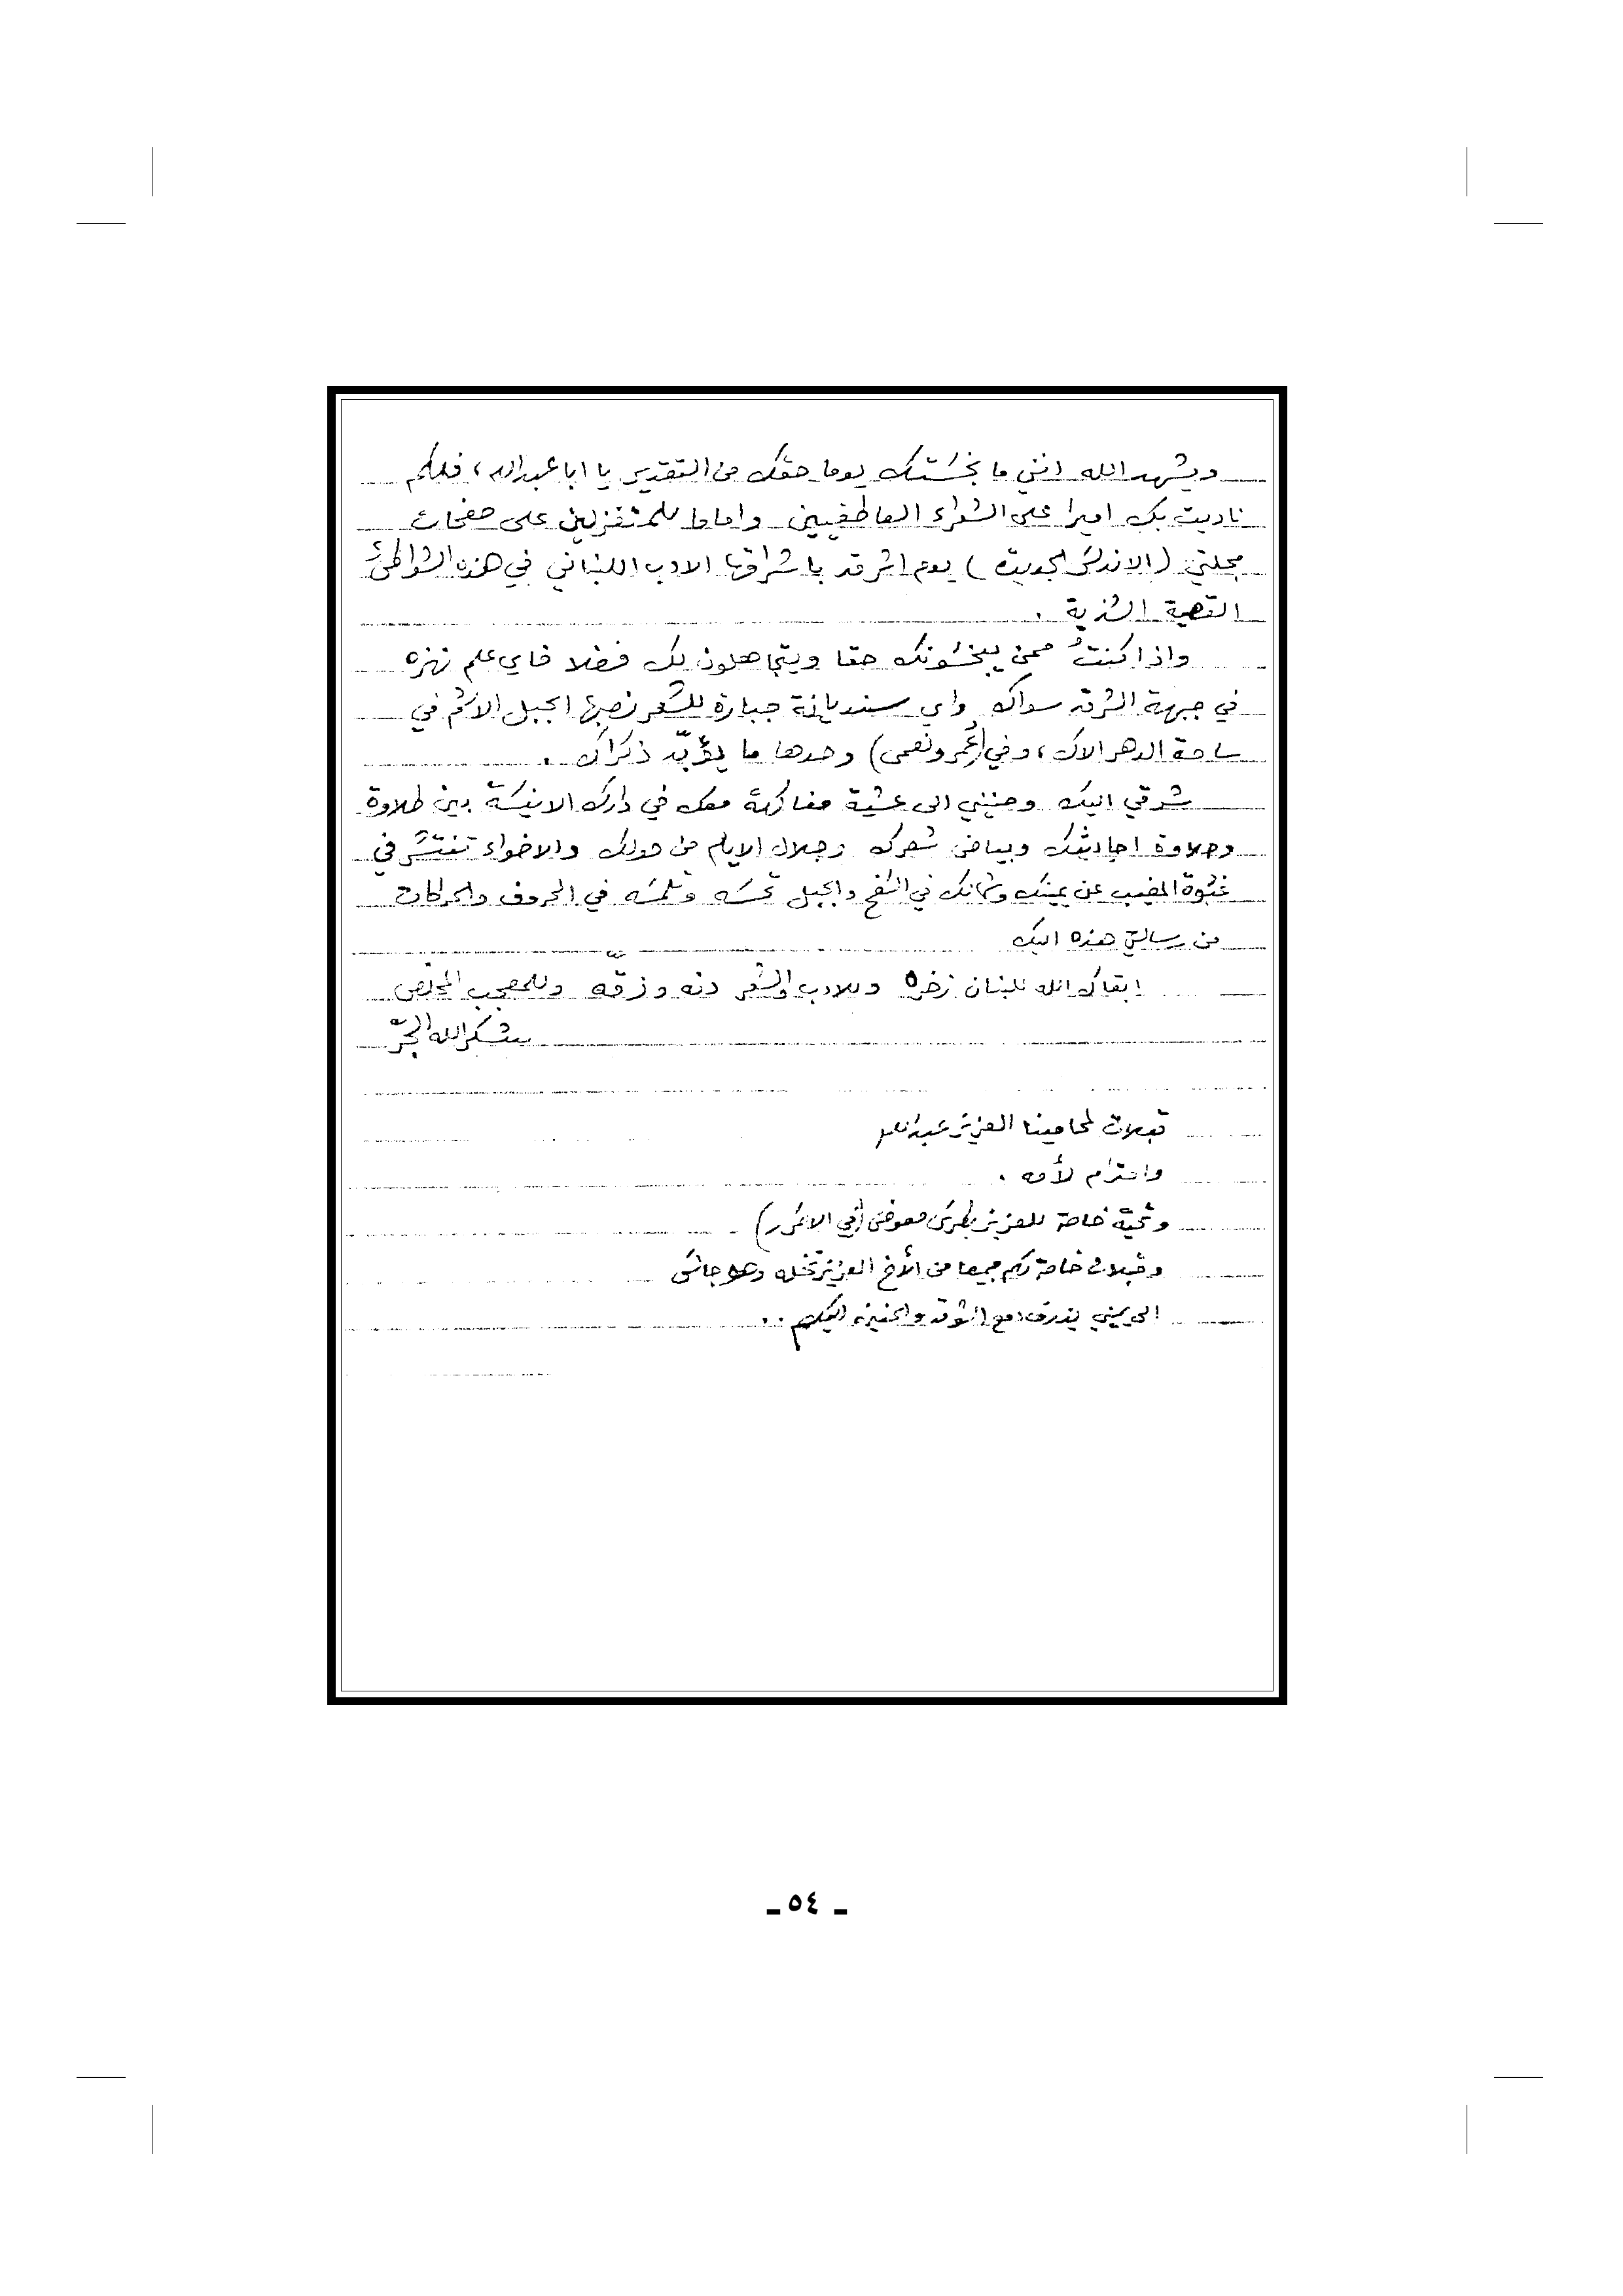 ويشهد الله انني ما بخستك يوما حقك من التقدير يا ابا عبدالله، فلكم
ناديت بك اميرا على الشعراء العاطفيين واماما للمتغزلين على صفحات
مجلتي (الاندلس الجديدة) يوم اشرقت باشراقها الادب اللبناني في هذه الشواطئ
القصية النديّة .
واذا كنتُ ممن يبخسونك حقا ويتجاهلون لك فضلا فاي علم نهزه
في جبهة الشرق سواك واي سنديانة جبارة للشعر نصبها الجبل الاشم في
ساحة الدهر الاك، وفي (عمر ونعمى) وحدها ما يؤبّد ذكراك .
شوقي اليك وحنيني الى عشية مفاكهة معك في دارك الانيسة بين طلاوة
وحلاوة احاديثك وبياض شعرك وجلال الايام من حولك والاضواء تنتشر في
المغيب عن يمينك وشمالك في السفح والجبل تحسّه وتلمسه في الحروف والحركات
من رسالتي هذه اليك
ابقاك الله للبنان ذخره وللادب والشعر دنّه وزقّه وللمعجب المخلص
شكرالله الجرّ
قبلات لمحامينا العزيز عبدالله
واحترام لأمه .
وتحيّة خاصة للعزيز بطرس معوض (أبي الا
وقبلات خاصة لكم جميعا من الأخ العزيز نخله وهو جالس
الى يميني يذرف دمع الشوق والحنين اليكم ..
ـ ٥٤ ـ